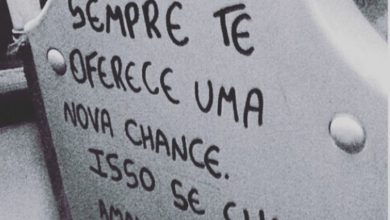 SEMPRE TE
OFERECE UMA
NOVA CHANCE.
ISSO SE